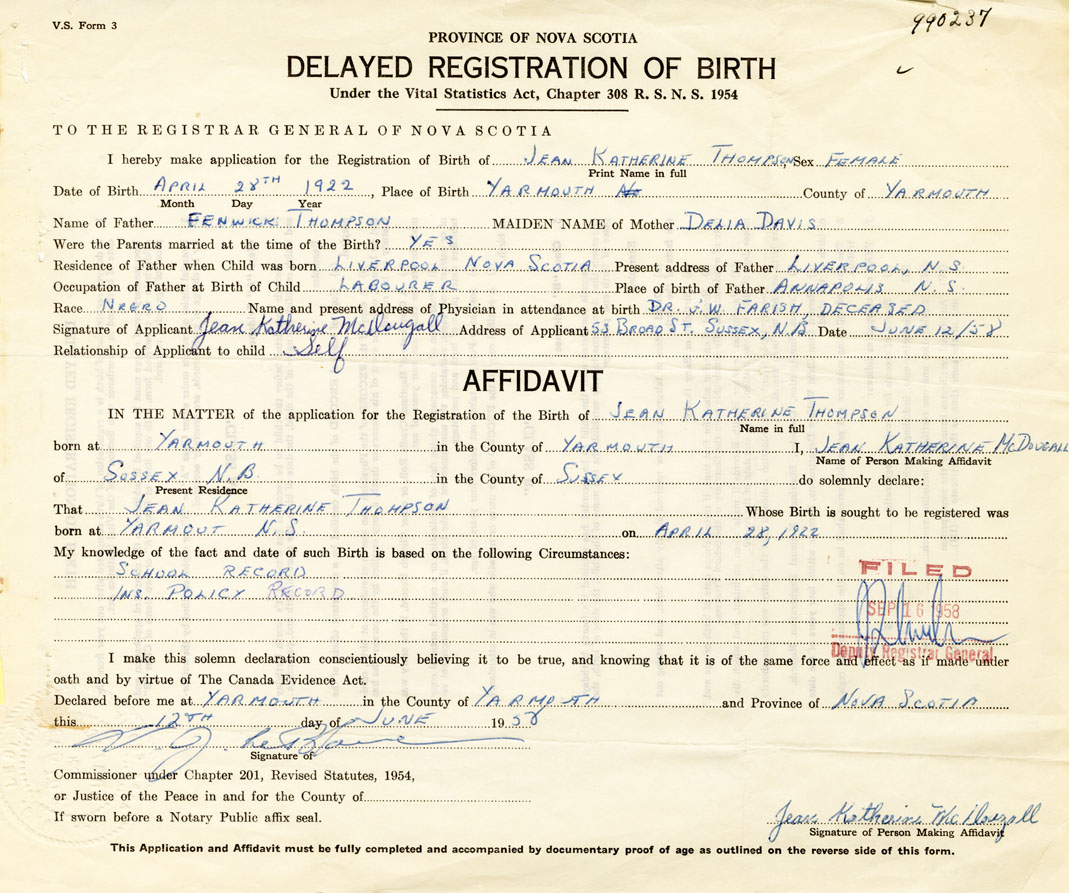 V.S. Form 3
990237
PROVINCE OF NOVA SCOTIA
DELAYED REGISTRATION OF BIRTH
Under the Vital Statistics Act, Chapter 308 R. S. N. S. 1954
TO THE REGISTRAR GENERAL OF NOVA SCOTIA
I hereby make application for the Registration of Birth of JEAN KATHERINE THOMPSON Sex FEMALE
Print Name in full
Date of Birth APRIL 28TH 1922, Place of Birth YARMOUTH County of YARMOUTH
Month Day Year
Name of Father FENWICK THOMPSON MAIDEN NAME of Mother DELIA DAVIS
Were the Parents married at the time of the Birth? YES
Residence of Father when Child was born LIVERPOOL NOVA SCOTIA Present address of Father LIVERPOOL, N.S.
Occupation of Father at Birth of Child LABOURER Place of birth of Father ANNAPOLIS N.S.
Race NEGRO Name and present address of Physician in attendance at birth DR. J.W. FARISH, DECEASED
Signature of Applicant Jean Katherine McDougall Address of Applicant 53 BROAD ST. SUSSEX, N.B. Date JUNE 12/58
Relationship of Applicant to child Self
AFFIDAVIT
IN THE MATTER of the application for the Registration of the Birth of JEAN KATHERINE THOMPSON
Name in full
born at YARMOUTH in the County of YARMOUTH I, JEAN KATHERINE McDOUGALL
Name of Person Making Affidavit
of SUSSEX N.B. in the County of SUSSEX do solemnly declare:
Present Residence
That JEAN KATHERINE THOMPSON Whose Birth is sought to be registered was
born at YARMOUT N.S. on APRIL 28, 1922
My knowledge of the fact and date of such Birth is based on the following Circumstances:
SCHOOL RECORD
INS. POLICY RECORD
FILED
SEP 16 1958
Deputy Registrar General
I make this solemn declaration conscientiously believing it to be true, and knowing that it is of the same force and effect as if made under
oath and by virtue of The Canada Evidence Act.
Declared before me at YARMOUTH in the County of YARMOUTH and Province of NOVA SCOTIA
this 12TH day of JUNE 1958
Signature of
Commissioner under Chapter 201, Revised Statutes, 1954,
or Justice of the Peace in and for the County of
If sworn before a Notary Public affix seal.
Jean Katherine McDougall
Signature of Person Making Affidavit
This Application and Affidavit must be fully completed and accompanied by documentary proof of age as outlined on the reverse side of this form.